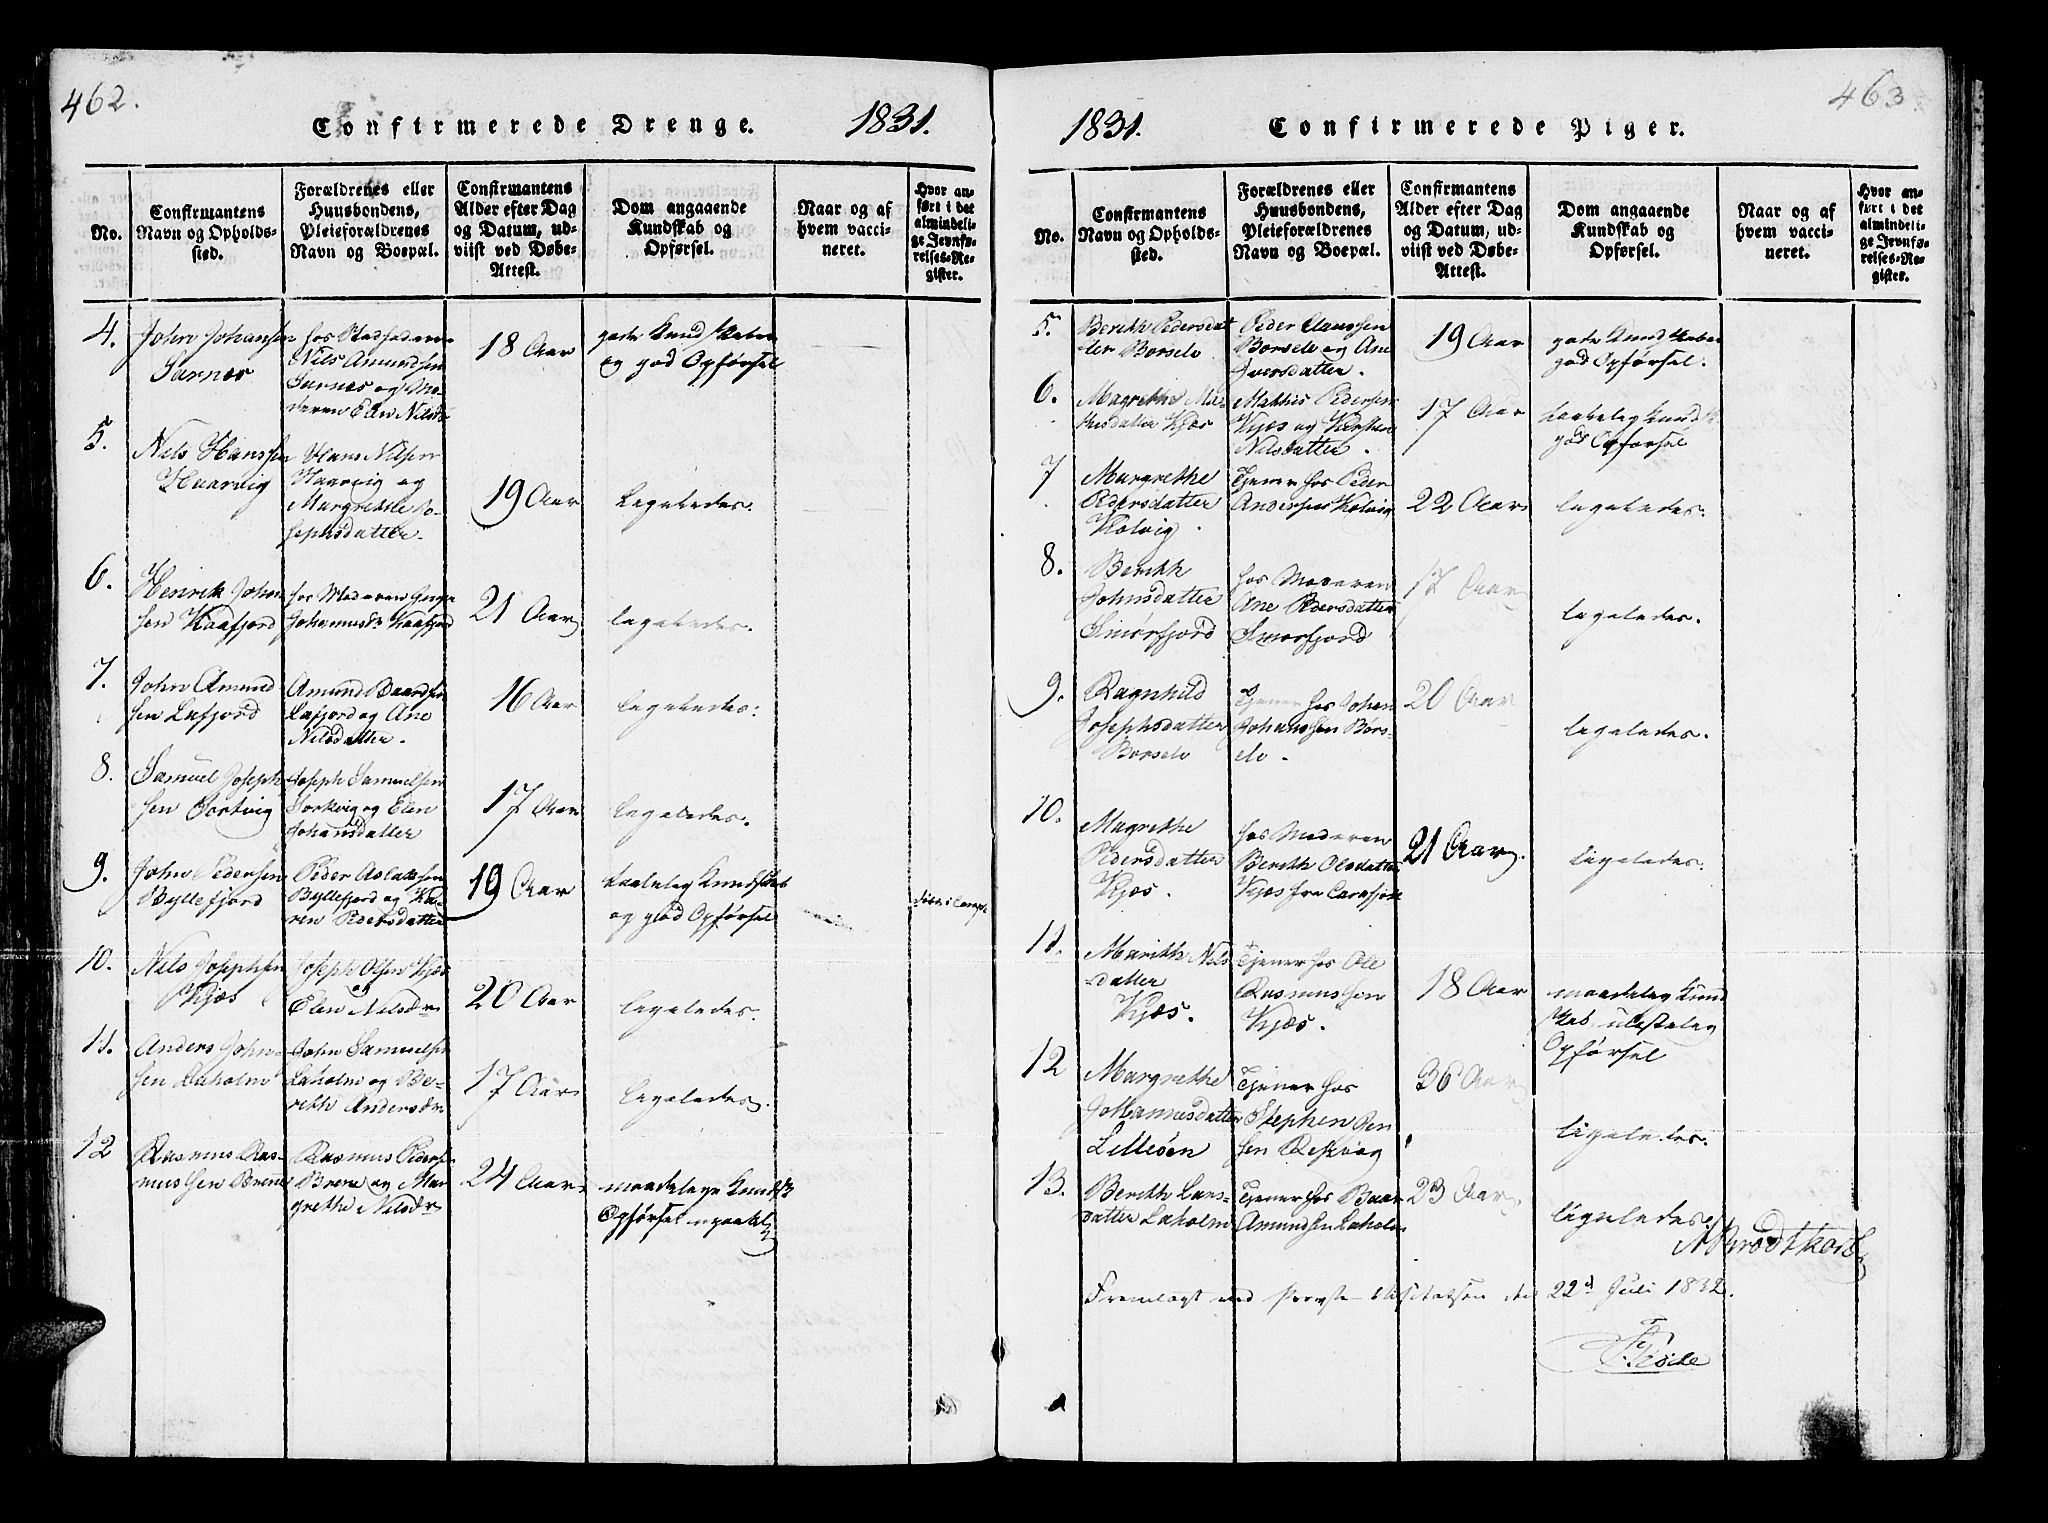 462.
Confirmerede Drenge.
1831.
No.
Confirmantens
Navn og Opholds-
sted.
Forældrenes eller
Huusbondens,
Pleieforældrenes
Navn og Boepæl.
Confirmantens
Alder efter Dag
og Datum, ud-
viist ved Døbe-
Attest.
Dom angaaende
Kundskab og
Opførsel.
Naar og af
hvem vacci-
neret.
Hvor an-
ført i det
almindeli-
ge Jevnfø-
relses-Re-
gister.
4.
John Johansen
Sarnes
hos
Nils Amundsen
Sarnes og Mo-
deren Elen Nilsd
18 Aar
gode Kundskaber
og god Opførsel
5.
Nils Hanssen
Haarvig
Hans Nilsen
Haarvig og
Margrethe Jo-
sephsdatter.
19 Aar
Ligeledes.
6.
Henrik Johan
sen Kaafjord
hos Moderen
Johannesdr Kaafjord
21 Aar
ligeledes.
7.
John Amund
sen Lafjord
Amund Baardsen
Lafjord og Ane
Nilsdatter.
16 Aar
ligeledes:
8.
Samuel Joseph
sen Sortvig
Joseph Samuelsen
Sortvig og Elen
Johansdatter
17 Aar
Ligeledes.
9.
John Pedersen
Byllefjord
Peder Aslaksen
Byllefjord og Ka-
ren Pedersdatter
19 Aar
taalelig Kundskab
og god Opførsel
10.
Nils Josephsen
Kjæs
Joseph Olsen Kjæs
og
Elen Nilsdr
20 Aar
ligeledes.
11.
Anders John-
sen Laholm
John Samuelsen
Laholm og Be-
reth Andersdr
17 Aar
ligeledes.
12
Rasmus Ras-
mussen Brenne
Rasmus Peders
Brene og Mar
grethe Nilsdr
24 Aar
maadelige Kundsk
Opførsel upaakl
463.
1831.
Confirmerede Piger.
No.
Confirmantens
Navn og Opholds-
sted.
Forældrenes eller
Huusbondens,
Pleieforældrenes
Navn og Boepæl.
Confirmantens
Alder efter Dag
og Datum, ud-
viist ved Døbe-
Attest.
Dom angaaende
Kundskab og
Opførsel.
Naar og af
hvem vacci-
neret.
Hvor an-
ført i det
almindeli-
ge Jevnfø-
relses-Re-
gister.
5.
Berith Pedersdat
ter Borselv
Peder Claussen
Borselv og Ane
Iversdatter.
19 Aar
gode Kundskaber
god Opførsel.
6.
Magrethe Ma-
thisdatter Kjæs
Mathis Pedersen
Kjæs og Kirsten
Nilsdatter.
17 Aar
taalelig Kundsk
god Opførsel
7
Margrethe
Pedersdatter
Kolvig
Tjener hos Peder
Anderssen Kolvig
22 Aar
ligeledes.
8.
Berith
Johnsdatter
Smørfjord
hos Moderen
Ane Pedersdatter
Smørfjord
17 Aar
ligeledes.
9.
Ragnhild
Josephsdatter
Borselv
Tjener hos Johan
Johanssen Børs-
elv.
20 Aar
ligeledes.
10.
Magrethe
Pedersdatter
Kjæs.
hos Moderen
Berith Olsdatter
Kjæs fra
21 Aar.
Ligeledes.
11.
Marith Nils
datter
Kjæs.
Tjener hos Ole
Rasmussen
Kjæs.
18 Aar
maadelig Kund
skab,
Opførsel
12
Margrethe
Johannesdatter
Lilleøen
Tjener hos
Stephen
sen Reskvog
36 Aar
ligeledes.
13.
Berith Lars-
datter Laholm
Tjener hos Baar
Amundsen Laholm
23 Aar
ligeledes.
Brodtkorb
Fremlagt ved Provste Visitatsen den 22d Juli 1832.